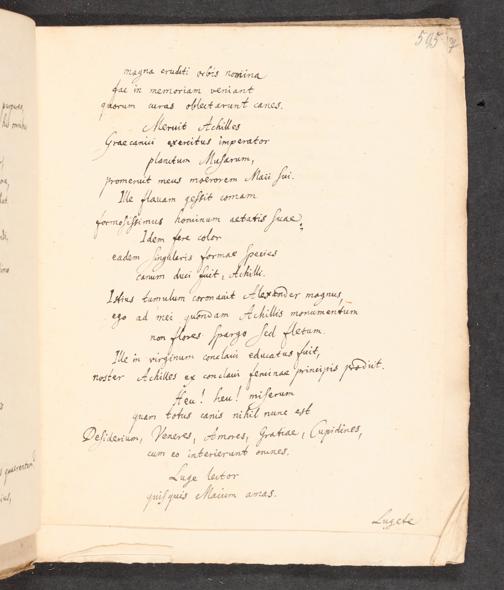 595
magna eruditi orbis nomina
quae in memoriam veniant
quorum curas oblectarunt canes.
Meruit Achilles
Graecanici exercitus imperator
planctum Musarum,
promeruit meus moerorem Maii sui.
Ille flavam gessit comam
formosissimus hominum aetatis suae,
Idem fere color
eadem singularis formae species
canum duci fuit, Achilli.
Istius tumulum coronavit Alexander magnus,
ego ad mei quondam Achillis monumentum
non flores spargo sed fletum.
Ille in virginum conclavi educatus fuit,
noster Achilles ex conclavi feminae principis prodiit.
Heu! heu! miserum
quam totus canis nihil nunc est
Desiderium, Veneres, Amores, Gratiae, Cupidines,
cum eo interierunt omnes.
Luge lector
quisquis Maium amas.
Lugete